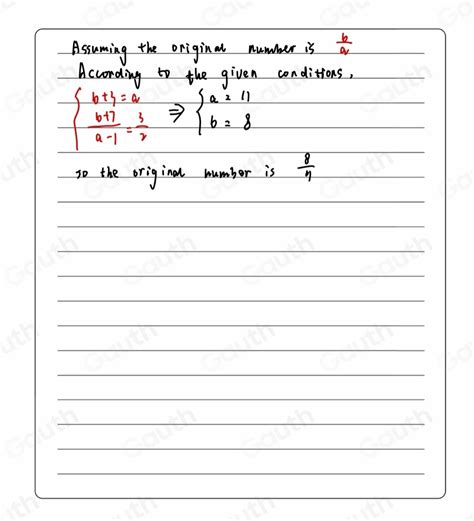 Assuming the original number is b/a
According to the given conditions,
{ b+3=a ⇒ { a = 11
(b+7)/(a-1) = 3/2 b = 8
so the original number is 8/11
Gauth